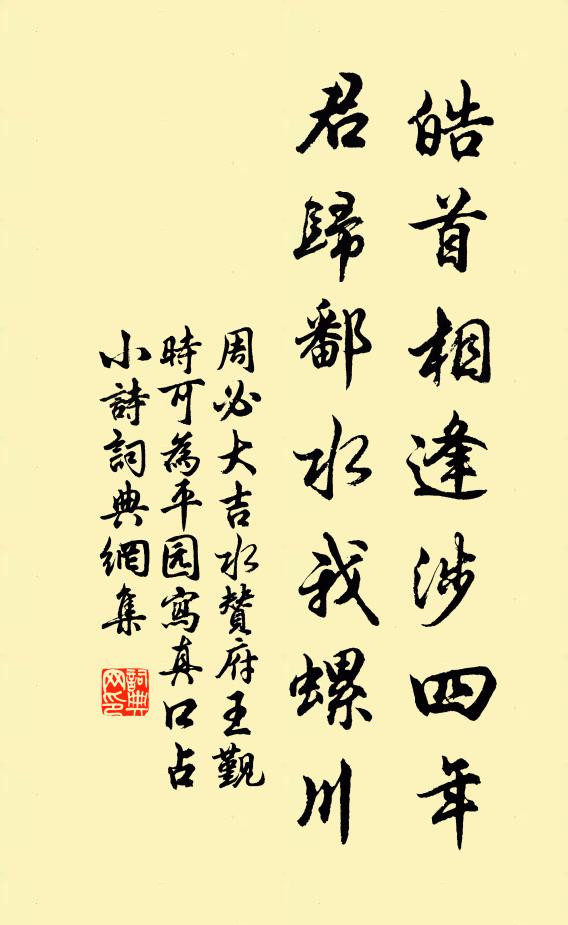 皓首相逢涉四年
君歸鄱水我螺川
周必大吉水贊府王觀
時可為平园寫真口占
小詩詞典網集
詞典网印